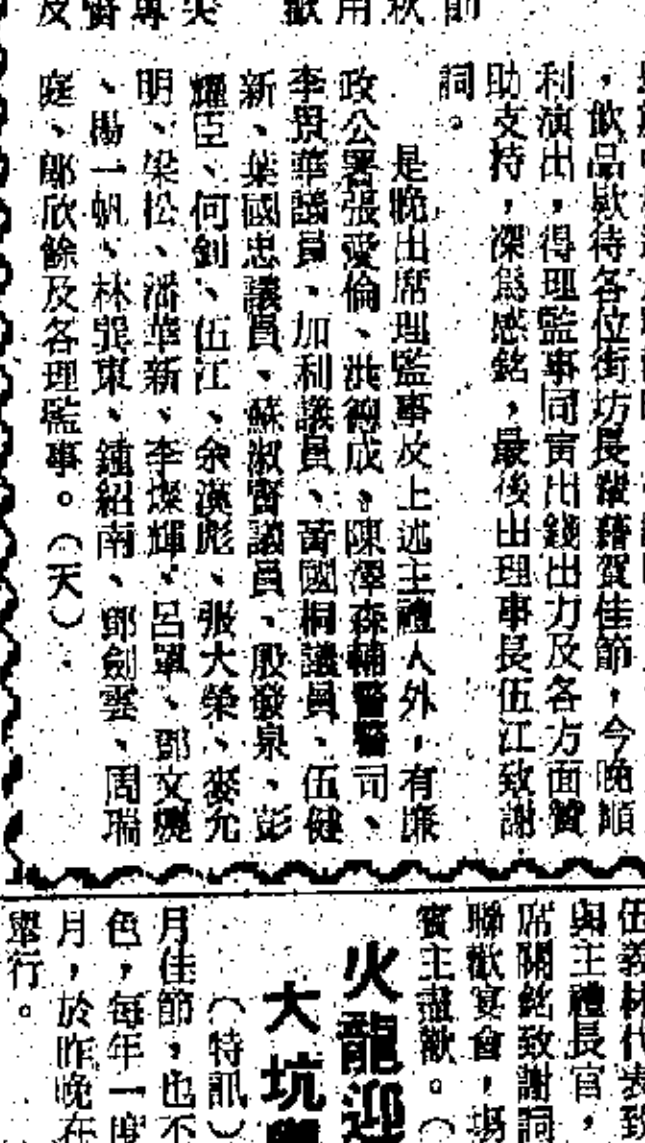 節
秋
用
歡
尖
專
督
及
，飲品欵待各位街坊長輩藉賀佳節，今晚順
利演出，得理監事同寅出錢出力及各方面贊
助支持，深爲感銘，最後由理事長伍江致謝
詞。
是晚出席理監事及上述主禮人外，有廉
政公署張愛倫、洪德成、陳澤森輔警警司、
李景華議員、加利議員、黃國桐議員、伍健
新、葉國忠議員、蘇淑賢議員、殷發泉、彭
耀臣、何釗、伍江、余漢彪、張大榮、麥允
明、梁松、潘華新、李燦輝、呂單、鄧文
、楊一帆、林巽東、鍾紹南、鄧劍雲、周瑞
庭、鄺欣餘及各理監事。（天）
伍義林代表致
與主禮長官，
席關銘致謝詞
聯歡宴會，場
賓主盡歡。（
火龍迎
大坑
（特訊）
月佳節，也不
色，每年一度
月，於昨晚在
舉行。